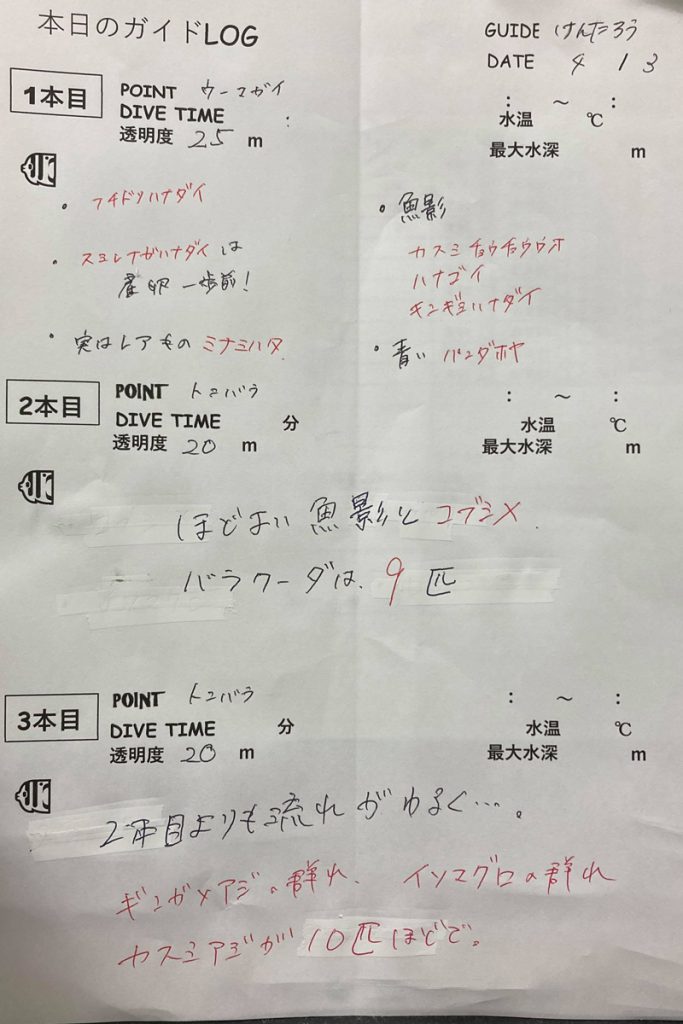 本日のガイドLOG
GUIDE けんたろう
DATE 4 13
1本目
POINT ウーマガイ
DIVE TIME :
透明度 25 m
: ～ :
水温 ℃
最大水深 m
・フチドリハナダイ
・スミレナガハナダイは
産卵一歩前!
・実はレアもの ミナミハタ
・魚影
カスミチョウチョウウオ
ハナゴイ
キンギョハナダイ
・青い パンダホヤ
2本目
POINT トンバラ
DIVE TIME 分
透明度 20 m
: ～ :
水温 ℃
最大水深 m
ほどよい魚影とコブシメ.
バラクーダは、9匹
3本目
POINT トンバラ
DIVE TIME 分
透明度 20 m
: ～ :
水温 ℃
最大水深 m
2本目よりも流れがゆるく…。
ギンガメアジの群れ、 イソマグロの群れ
カスミアジが10匹ほどで。